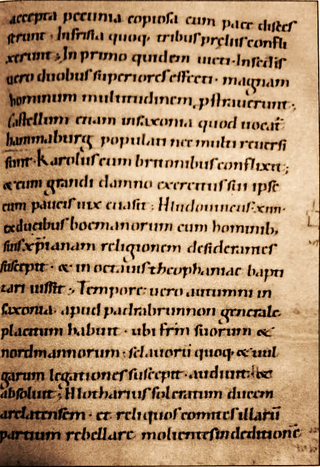 accepta pecunia copiosa cum pace disces
serunt · Infrisia quoq; tribus pręliis confli
xerunt; In primo quidem victi · Insedis
uero duobus superiores effecti · magnam
hominum multitudinem, pstrauerunt ·
castellum etiam insaxonia quod uocat
hammaburg populati nec inulti reuersi
sunt · Karolus cum brittonibus conflixit;
& cum grandi damno exercitus sui ipse
cum paucis uix euasit; Hludouuicus · xiiii ·
exducibus boemanorum cum hominib;
suis xp̄ianam religionem desiderantes
suscepit · & in octauis theophaniae bapti
zari iussit; Tempore uero autumni in
saxonia · apud padrabrunnon generale
placitum habuit · ubi frm̄ suorum &
nordmannorum · sclauorū quoq; & uul
garum legationes suscepit · audiuit · &
absoluit; Hlotharius folcratum ducem
arelatensem · et reliquos comites illarū
partium rebellare molientes indeditionē